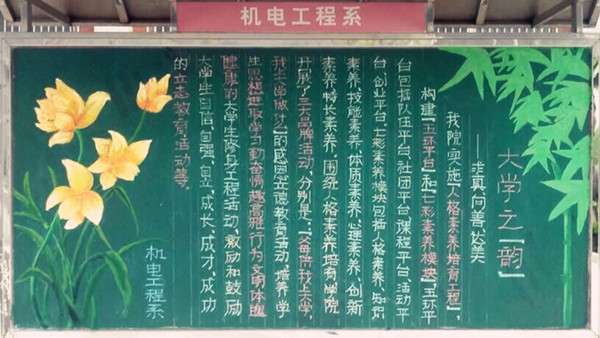 机电工程系
大学之『韵』
——求真向善达美
我院实施『人格素养培育工程』，
构建『五环平台』和『七彩素养模块』，五环平
台包括队伍平台、社团平台、课程平台、活动平
台、创业平台，七彩素养模块包括人格素养、知识
素养、技能素养、体质素养、心理素养、创新
素养、特长素养。围绕人格素养培育，学院
开展了三大品牌活动，分别是：『父母供我上大学，
我上大学做什么』的感恩立德教育活动，培养学
生思想进取、学习勤奋、情趣高雅、行为文明、体魄
健康的大学生修身工程活动，激励和鼓励
大学生自信、自强、自立，成长、成才、成功
的立志教育活动等。
机电工程系